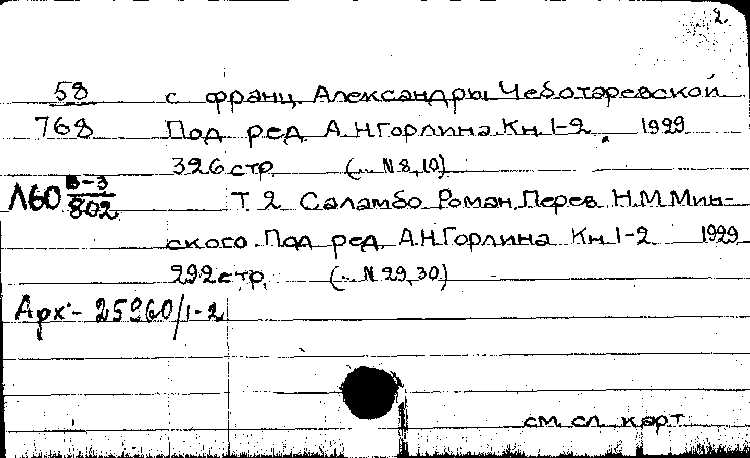 2.
58 с франц. Александры Чеботаревской
768 Под ред. А.Н Горлина. Кн. 1-2. 1929
326 стр. (... N 8, 10)
Л60 В-3/802 Т. 2 Саламбо. Роман. Перев. Н.М. Мин-
ского. Под ред. А.Н. Горлина. Кн. 1-2 1929
292 стр. (... N 29, 30)
Арх:- 25960/1-2
см. сл. карт.